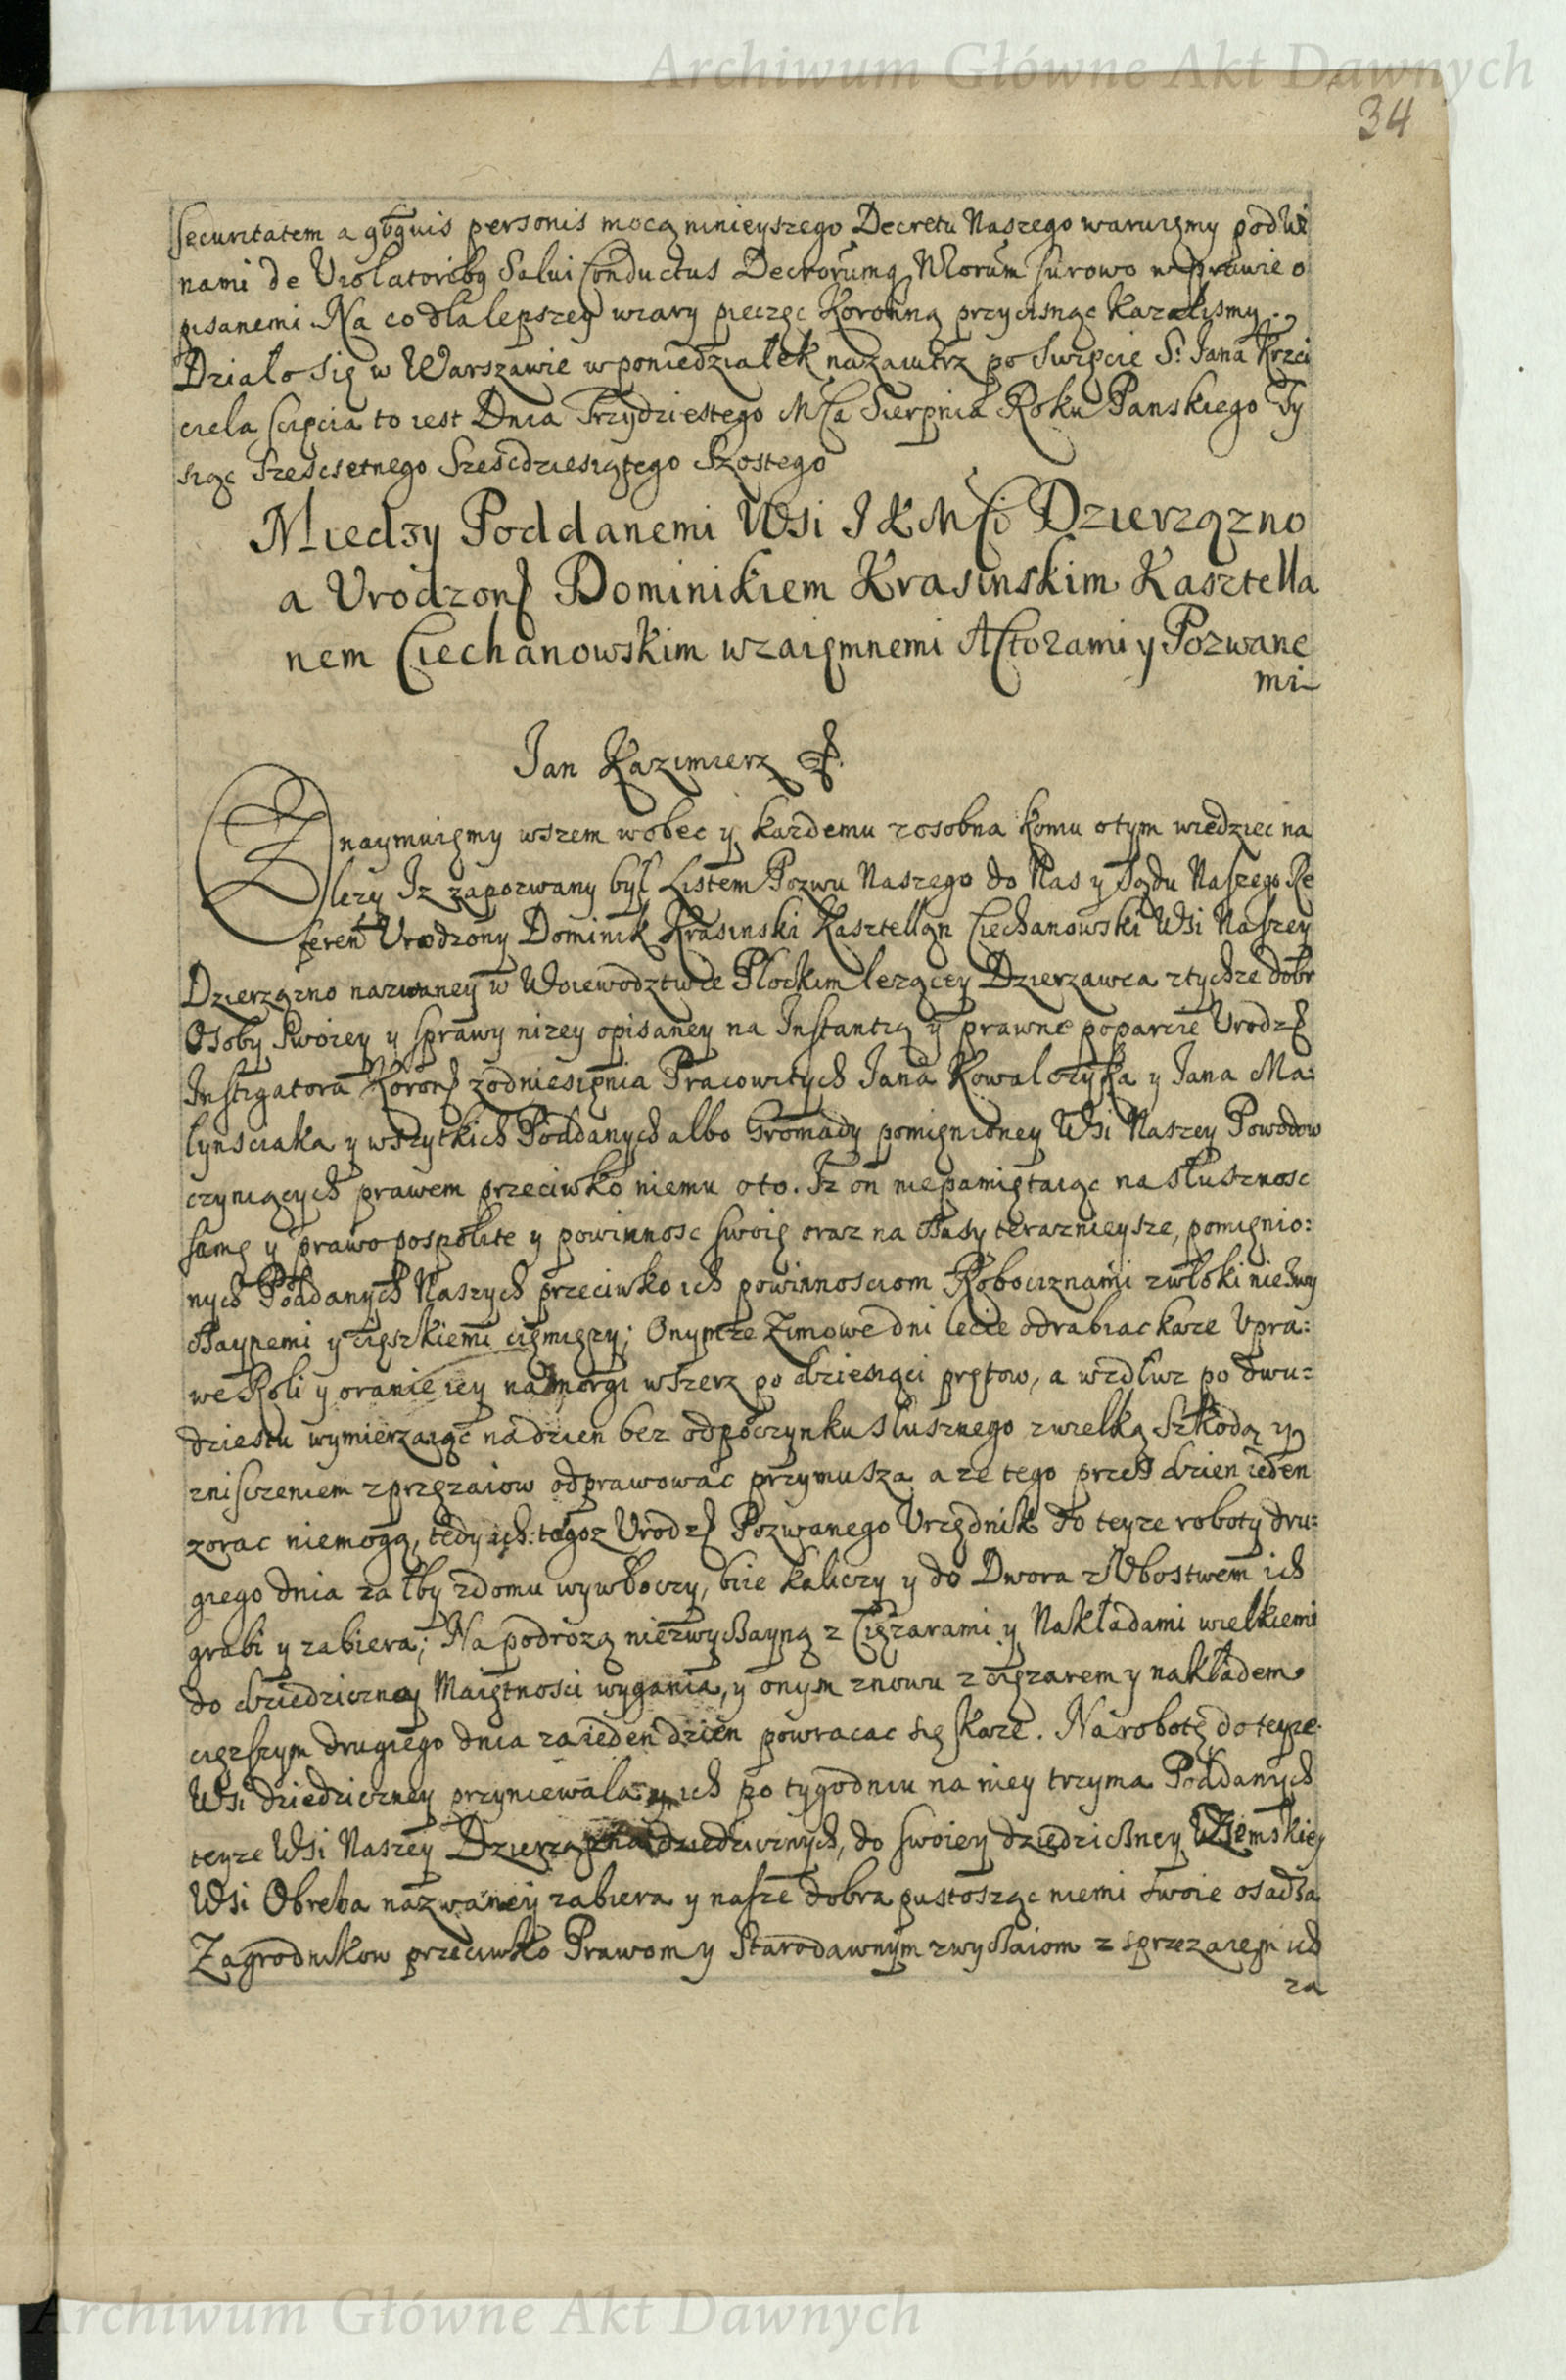 Archiwum Główne Akt Dawnych
34
securitatem a qbusvis personis mocą ninieyszego Decretu Naszego waruięmy pod Wi
nami de Violatoribq Salui Conductus Decretorumq Nrorum surowo w prawie o
pisanemi. Na co dla lepszey wiary pieczęc Koronną przycisnąc kazalismy.
Działo się w Warszawie w poniedziałek nazaiutrz po Swięcie S: Jana Krzci
ciela scięcia to iest Dnia Trzydziestego Mca Sierpnia Roku Panskiego Ty
siąc Szescsetnego Szescdziesiątego Szostego
Miedzy Poddanemi Wsi J K Mci Dzierzązno
a Vrodzon Dominikiem Krasinskim Kasztella
nem Ciechanowskim wzaięmnemi Actorami y Pozwane
mi
Jan Kazimierz
Znaymuięmy wszem wobec y kazdemu zosobna komu otym wiedziec na
lezy Iz zapozwany był Listem Pozwu Naszego do Nas y Sądu Naszego Re
feren Vrodzony Dominik Krasinski Kasztellan Ciechanowski Wsi Naszey
Dzierzązno nazwaney w Woiewodztwie Płockim lezącey Dzierzawca ztychze dobr
Osoby Swoiey y sprawy nizey opisaney na Instantią y prawne poparcie Vrodz
Instigatora Koron zodniesięnia Pracowitych Jana Kowalczyka y Jana Ma:
lynsciaka y wszytkich Poddanych albo Gromady pomięnioney Wsi Naszey Powodow
czyniących prawem przeciwko niemu oto. Iz on niepamiętaiąc na słusznosc
samę y prawo pospolite y powinnosc swoię oraz na Czasy teraznieysze, pomięnio:
nych Poddanych Naszych przeciwko ich powinnosciom Robociznami zwłoki niezwy
czaynemi y cięszkiemi cięmięzy; Onymze Zimowe dni lecie odrabiac kaze Vpra:
we Roli y oranie iey na morgi wszerz po dziesiąci prętow, a wzdłuz po dwu:
dziestu wymierzaiąc na dzien bez odpoczynku słusznego z wielką szkodą y
zniszczeniem zprzęzaiow odprawowac przymusza a ze tego przez dzien ieden
zorac niemogą, tedy ich: tegoz Vrodz Pozwanego Vrzędnik do teyze roboty dru:
giego dnia za łby z domu wywłoczy, biie kaliczy y do Dwora z Vbostwem ich
grabi y zabiera; Na podrozą niezwyczayną z Cięzarami y Nakładami wielkiemi
do dziedziczney Maiętnosci wygania, y onym znowu z cięzarem y nakładem
cięzszym drugiego dnia za ieden dzien powracac się kaze. Na robotę do teyze
Wsi dziedziczney przyniewala y ich po tygodniu na niey trzyma Poddanych
teyze Wsi Naszey dziedzicznych, do swoiey dziedziczney Ziemskiey
Wsi Obręba nazwaney zabiera y nasze dobra pustosząc niemi swoie osadza
Zagrodnikow przeciwko Prawom y Starodawnym zwyczaiom z sprzezaięm ich
za
Archiwum Główne Akt Dawnych